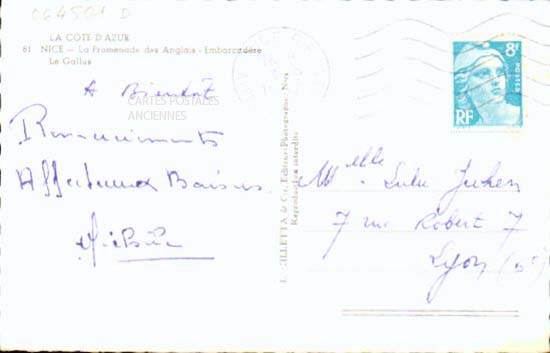 LA COTE D'AZUR
81 NICE — La Promenade des Anglais - Embarcadère
Le Gallus
A Bientôt
CARTES POSTALES
ANCIENNES
Remerciements
Affectueux Baisers
GILLETTA & Cie, Editeurs-Photographes, Nice
Reproduction interdite
8F
POSTES
RF
Melle Lulu
7 rue Robert 7
Lyon